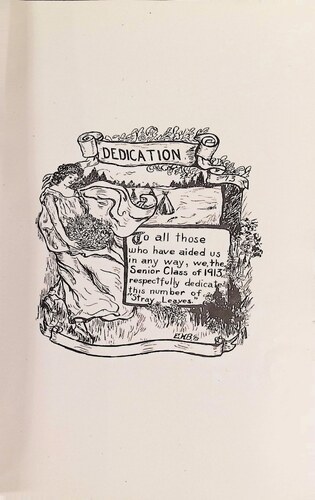 DEDICATION
'13
To all those
who have aided us
in any way, we, the
Senior Class of 1913,
respectfully dedicate
this number of
"Stray Leaves."